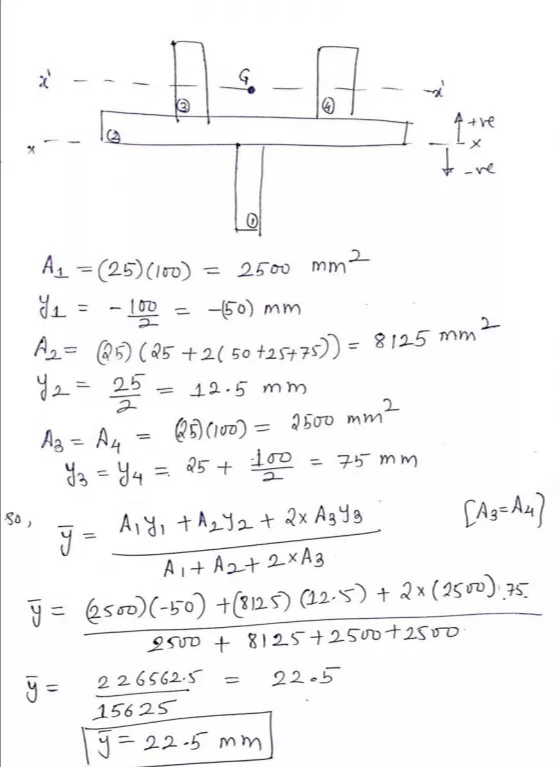 x' G x'
③ ④
② +ve
x x
-ve
①
A1 = (25)(100) = 2500 mm²
y1 = -100/2 = -(50) mm
A2 = (25)(25+2(50+25+75)) = 8125 mm²
y2 = 25/2 = 12.5 mm
A3 = A4 = (25)(100) = 2500 mm²
y3 = y4 = 25 + 100/2 = 75 mm
so, ȳ = (A1y1 + A2y2 + 2×A3y3)/(A1 + A2 + 2×A3) [A3=A4]
ȳ = ((2500)(-50) + (8125)(12.5) + 2×(2500).75)/(2500 + 8125 + 2500 + 2500)
ȳ = 226562.5/15625 = 22.5
ȳ = 22.5 mm